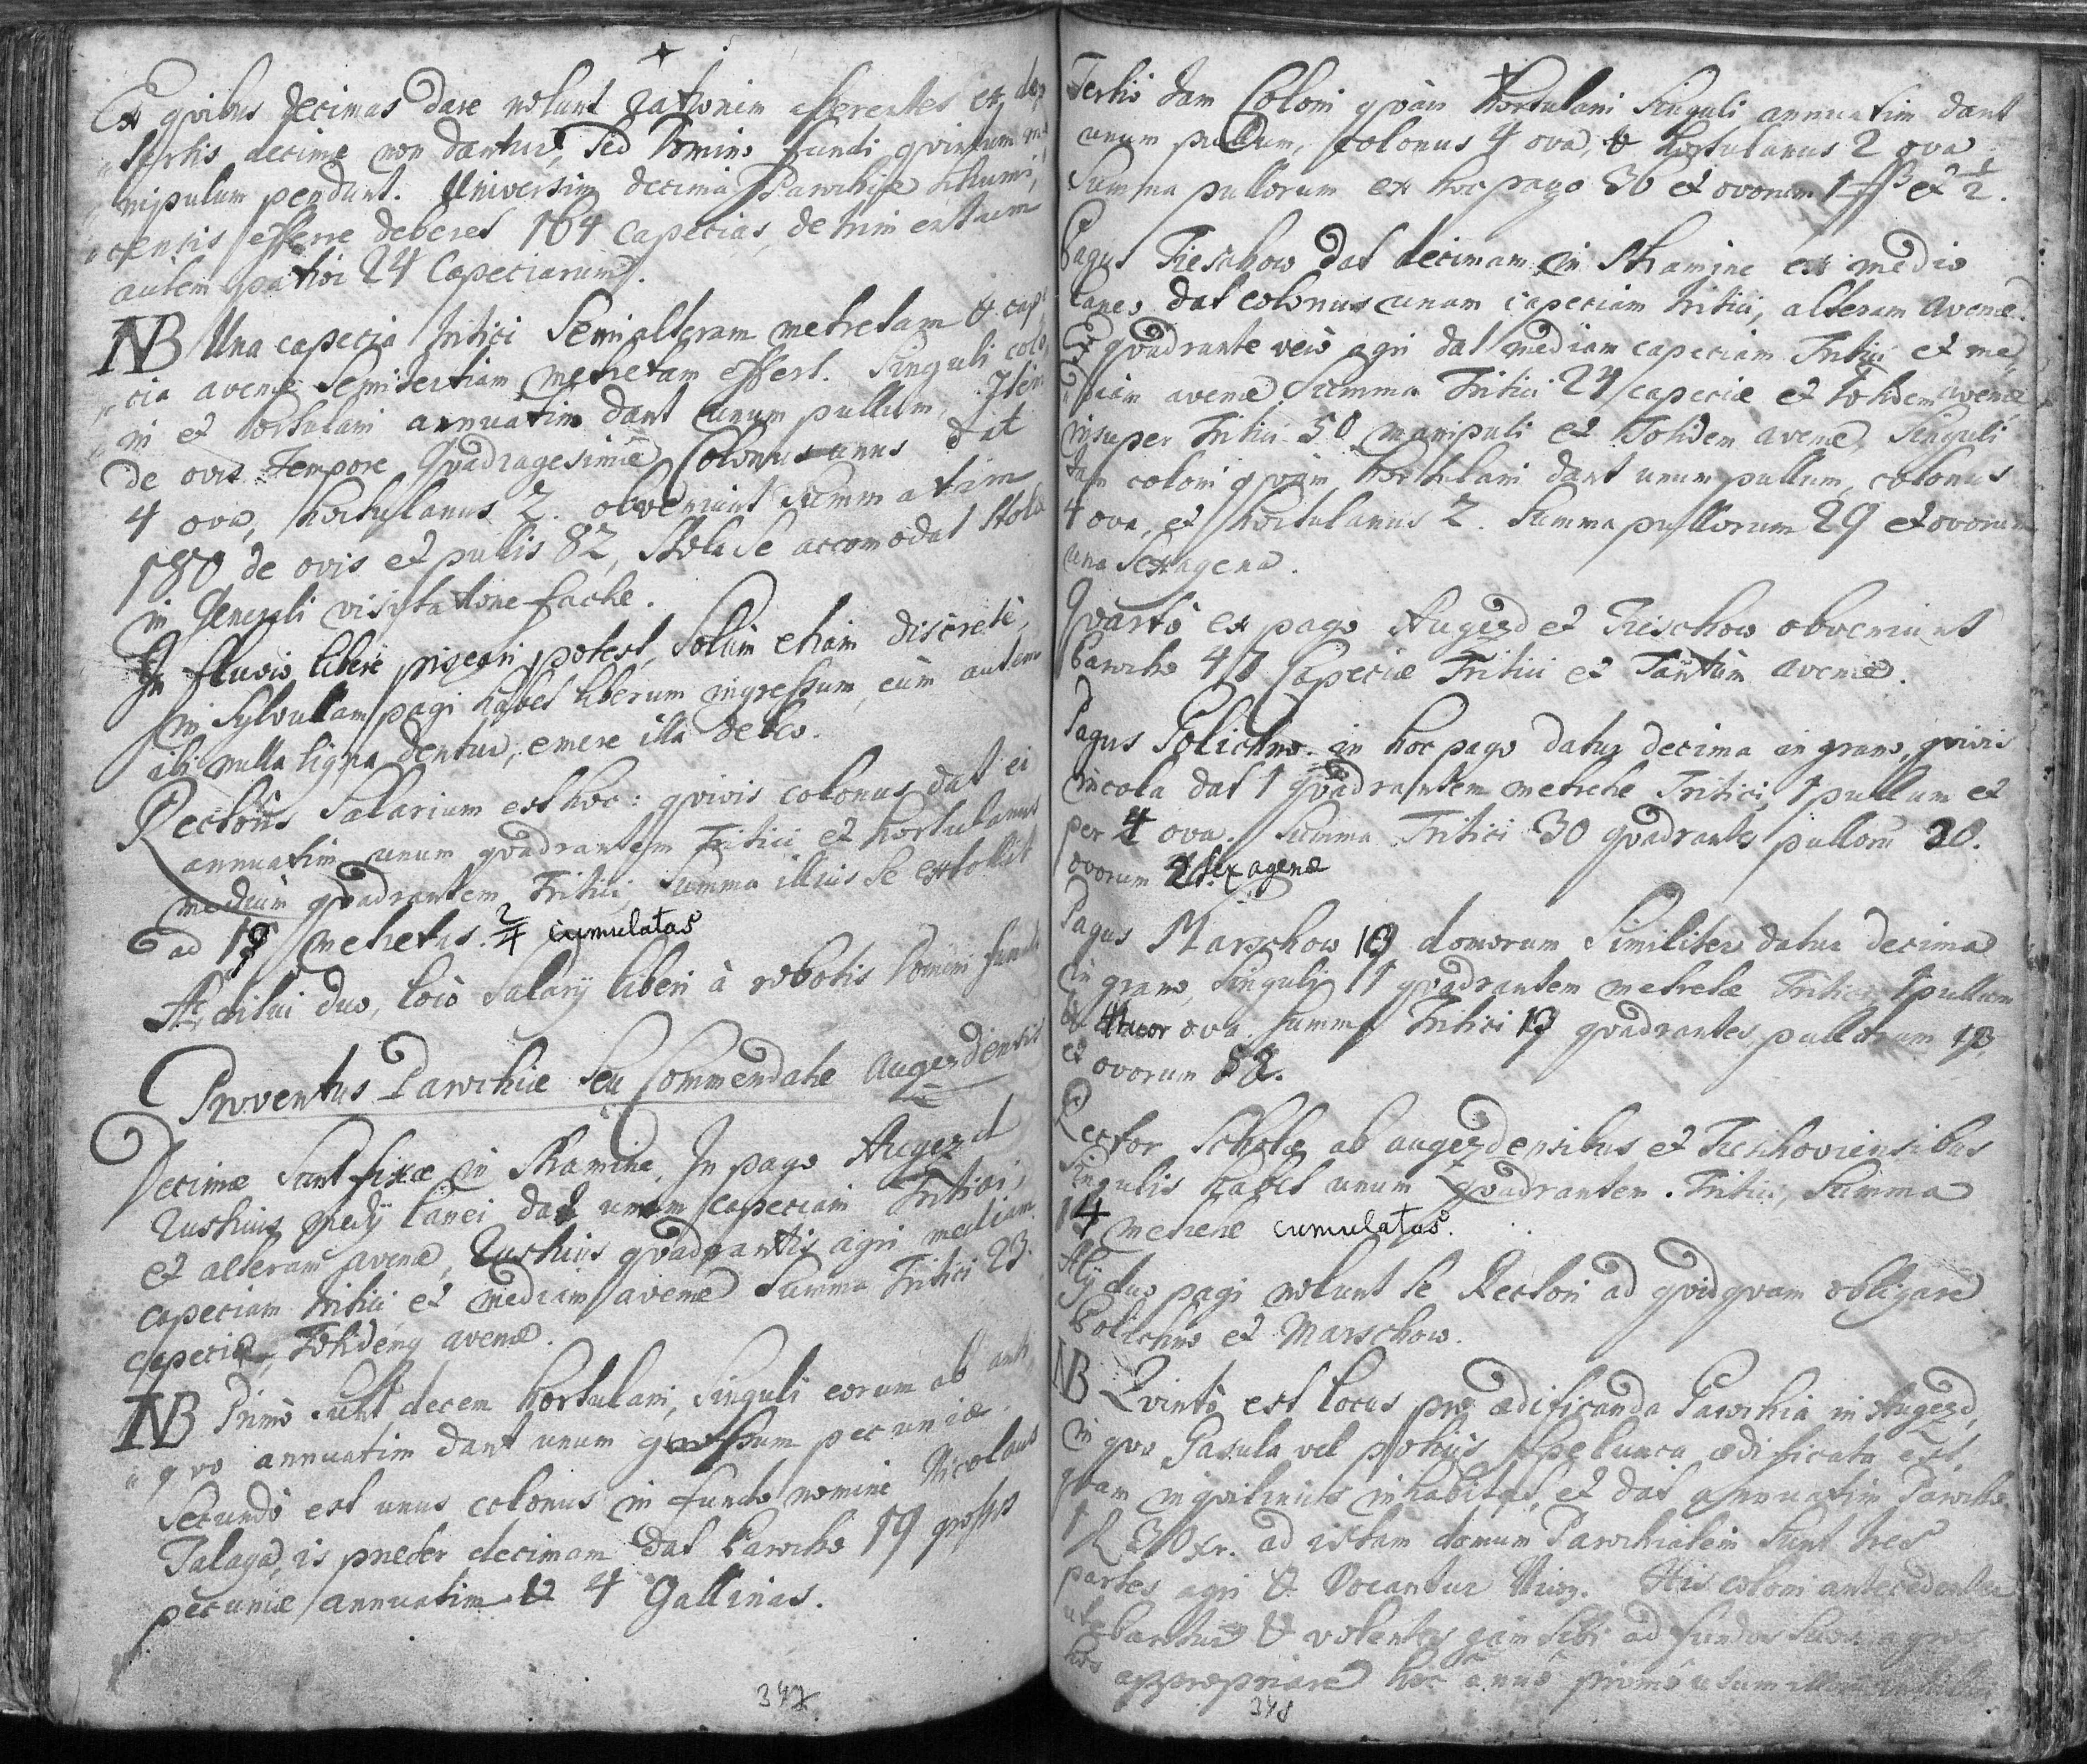 Ex quibus decimas dare nolunt rationem afferentes ex de,
sertis decime non dantur, sed Domino fundi quintum ma,
nipulum pendunt. Universim decima Parochiæ
censis efferre deberet 164 capecias, detrimentum
autem patior 24 Capeciarum.
NB Una capecia tritici semialteram metretam & cape
cia avenæ semitertiam metretam effert. Singuli colo,
ni et hortulani annuatim dant unum pullum, Item
de ovis tempore Quadragesimæ Colonus unus dat
4 ova, hortulanus 2. obveniunt summatim
180 de ovis et pullis 82, Stola se accomodat stolæ
in Generali visitatione factæ.
In fluvio liberè piscari potest, solùm etiam discretè,
in Sylvulam pagi habet liberum ingressum, cùm autem
ibi nulla ligna dentur, emere illa debeo.
Rectoris Salarium est hoc: quivis colonus dat ei
annuatim unum quadrantem Tritici et hortulanus
medium quadrantem Tritici, Summa illius se extollit
ad 18 metretas 2/4 cumulatas
Æditui duo, locò Salarij liberi à robotis Domini fundi
Proventus Parochiæ seu Commendatæ Augezdensis
Decimæ sunt fixæ in Stramine. In pago Augezd
Rusticus medij lanei dat unam capeciam Tritici,
et alteram avenæ, Rusticus quadrantis agri mediam
capeciam tritici et mediam avenæ Summa Tritici 23
capeciæ, Totidemq avenæ.
NB Primò sunt decem hortulani, singuli eorum ab anti,
quo annuatim dant unum grossum pecuniæ.
Secundò est unus colonus in fundo nomine Nicolaus
Talaga, is præter decimam dat Parocho 19 grossos
pecuniæ annuatim & 4 Gallinas.
347
Tertiò tam Coloni quàm Hortulani singuli annuatim dant
unum pullum, colonus 4 ova, & hortulanus 2 ova
Summa pullorum ex hoc pago 36 et ovorum 1 ß et 1/2.
Pagus Tieschow dat decimam in Stramine ex medio
laneo dat colonus unam capeciam tritici, alteram avenæ.
Ex quadrante verò agri dat mediam capeciam Tritici et me,
diam avenæ Summa Tritici 24 capeciæ et totidem avenæ
insuper Tritici 50 manipuli et Totidem avenæ, Singuli
tam coloni quàm hortulani dant unum pullum, colonus
4 ova, et hortulanus 2. Summa pullorum 29 et ovorum
una Sexagena.
Quartò ex pago Augezd et Tieschow obveniunt
Parocho 47 Capeciæ Tritici et Tantùm avenæ.
Pagus Polichno in hoc pago datur decima in grano, quivis
incola dat 1 quadrantem metretæ Tritici, 1 pullum et
per 4 ova. Summa Tritici 30 quadrantes pulloru 30.
ovorum 2 sexagenæ
Pagus Marschow 13 domorum Similiter datur decima
in grano, singuli 1 quadrantem metretæ Tritici, 1 pullum
& ova. Summa Tritici 13 quadrantes, pullorum 13.
et ovorum 52.
Rector Scholæ ab augezdensibus et Tieschoviensibus
Singulis habet unum quadrantem Tritici, Summa
14 metretæ cumulatas.
Alij duo pagi nolunt se Rectori ad quidquam obligare
Polichno et Marschow.
NB Quintò est locus pro ædificanda Parochia in Augezd,
in quo Casula vel potius spelunca ædificata est,
quam inquilinus inhabitat, et dat annuatim Parocho
1 fl 30 xr. ad istam domum Parochialem sunt tres
partes agri & vocantur Niwy. His coloni antecedenter
utebantur & volentes jam sibi ad fundos suos agros
hos appropriare hoc annô primô usum
348